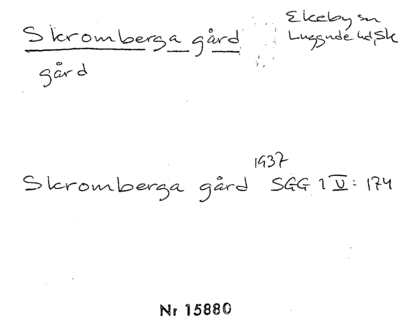 Skromberga gård
Ekeby sn
Luggude hd, Sk
gård
1937
Skromberga gård SGG 1 V: 174
Nr 15880